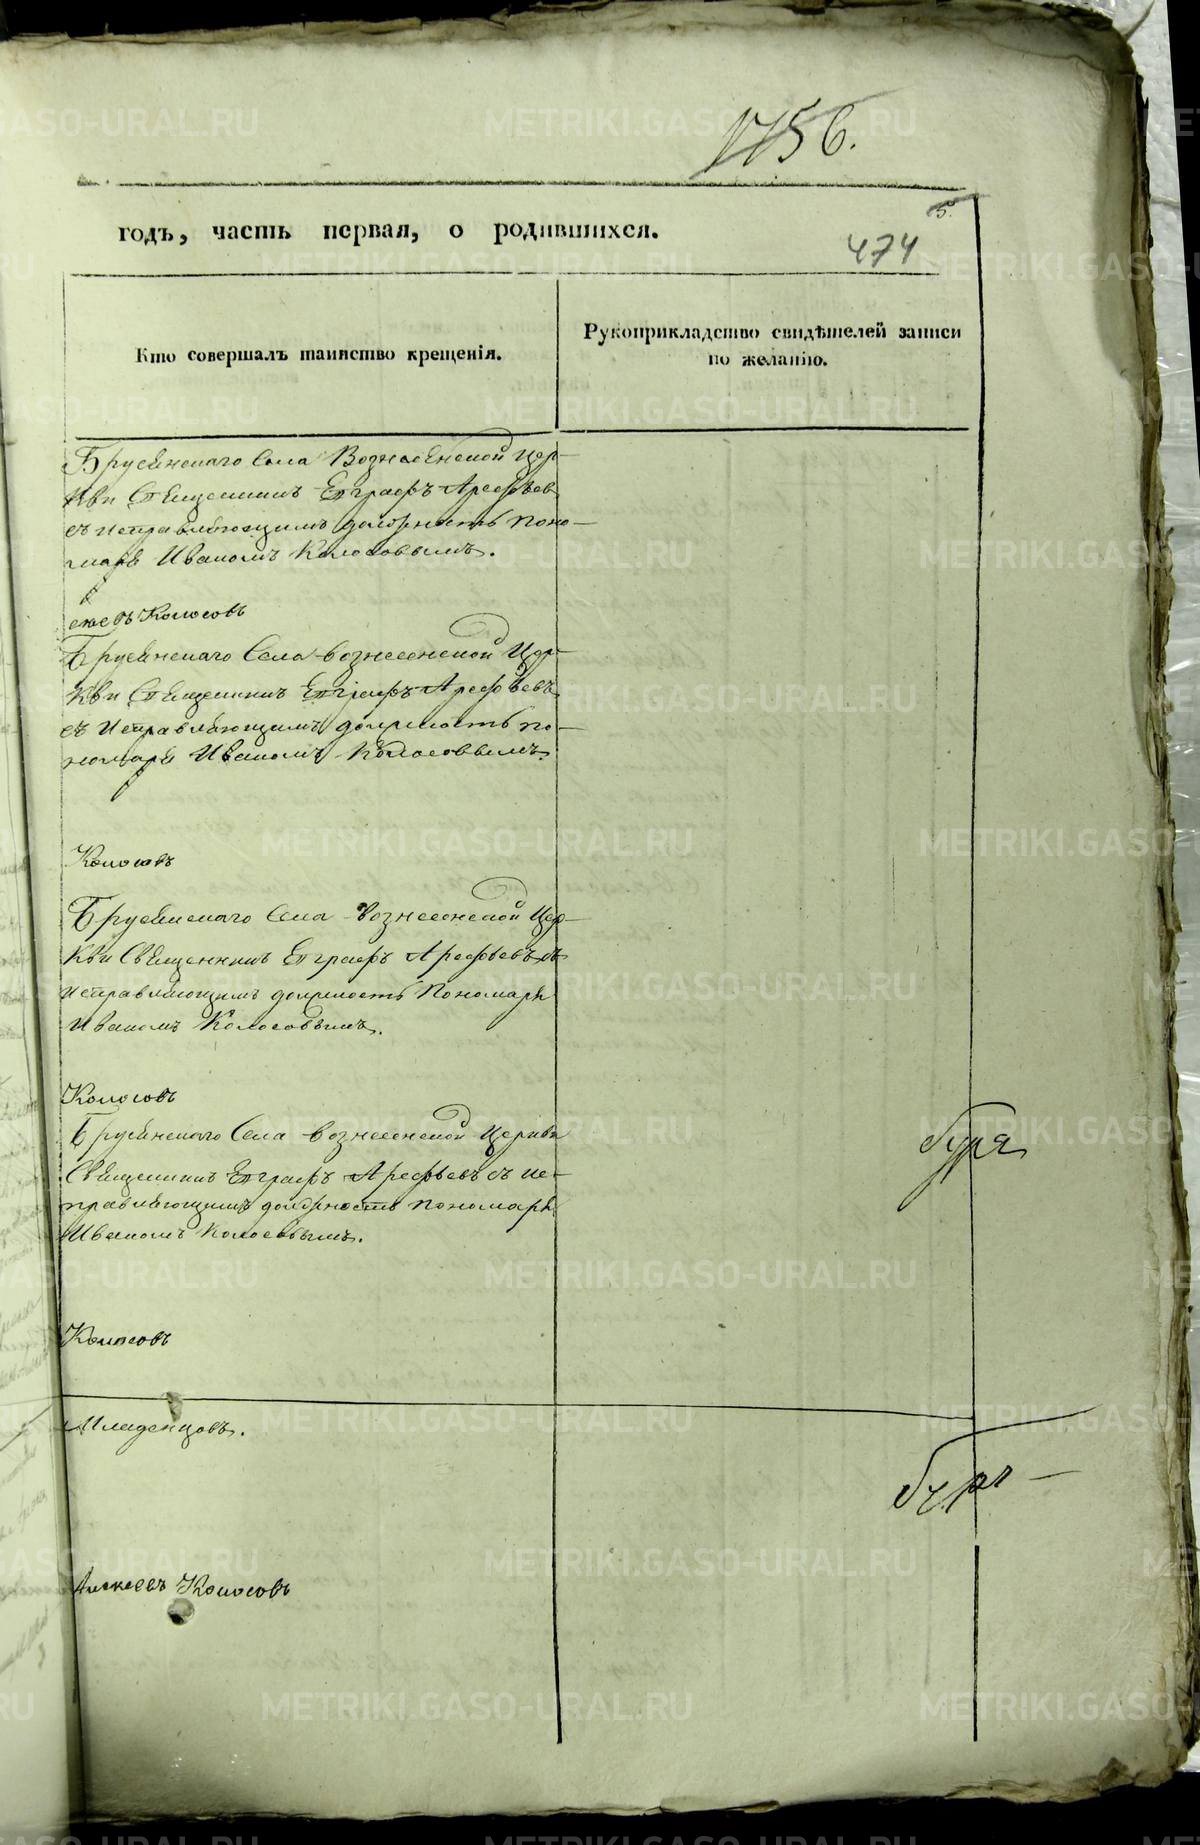 156.
5.
годъ, часть первая, о родившихся.
474
Кто совершалъ таинство крещенія.
Рукоприкладство свидѣтелей записи
по желанію.
Брусянскаго Села Вознесенской Цер-
кви Священникъ Евграфъ Арефьев
съ исправляющимъ должность поно-
маря Иваномъ Колосовымъ.
Колосовъ
Брусянскаго Села Вознесенской Цер-
кви Священникъ Евграфъ Арефьевъ
съ исправляющимъ должность по-
номаря Иваномъ Колосовымъ.
Колосовъ
Брусянскаго Села Вознесенской Цер-
кви Священникъ Евграфъ Арефьевъ съ
исправляющимъ должность Пономаря
Иваномъ Колосовымъ.
Колосовъ
Брусянскаго Села Вознесенской Церкви
Священникъ Евграфъ Арефьевъ съ ис-
правляющимъ должность пономаря
Иваномъ Колосовымъ.
Колосовъ
Младенцовъ.
Алексеевъ Колосовъ
METRIKI.GASO-URAL.RU